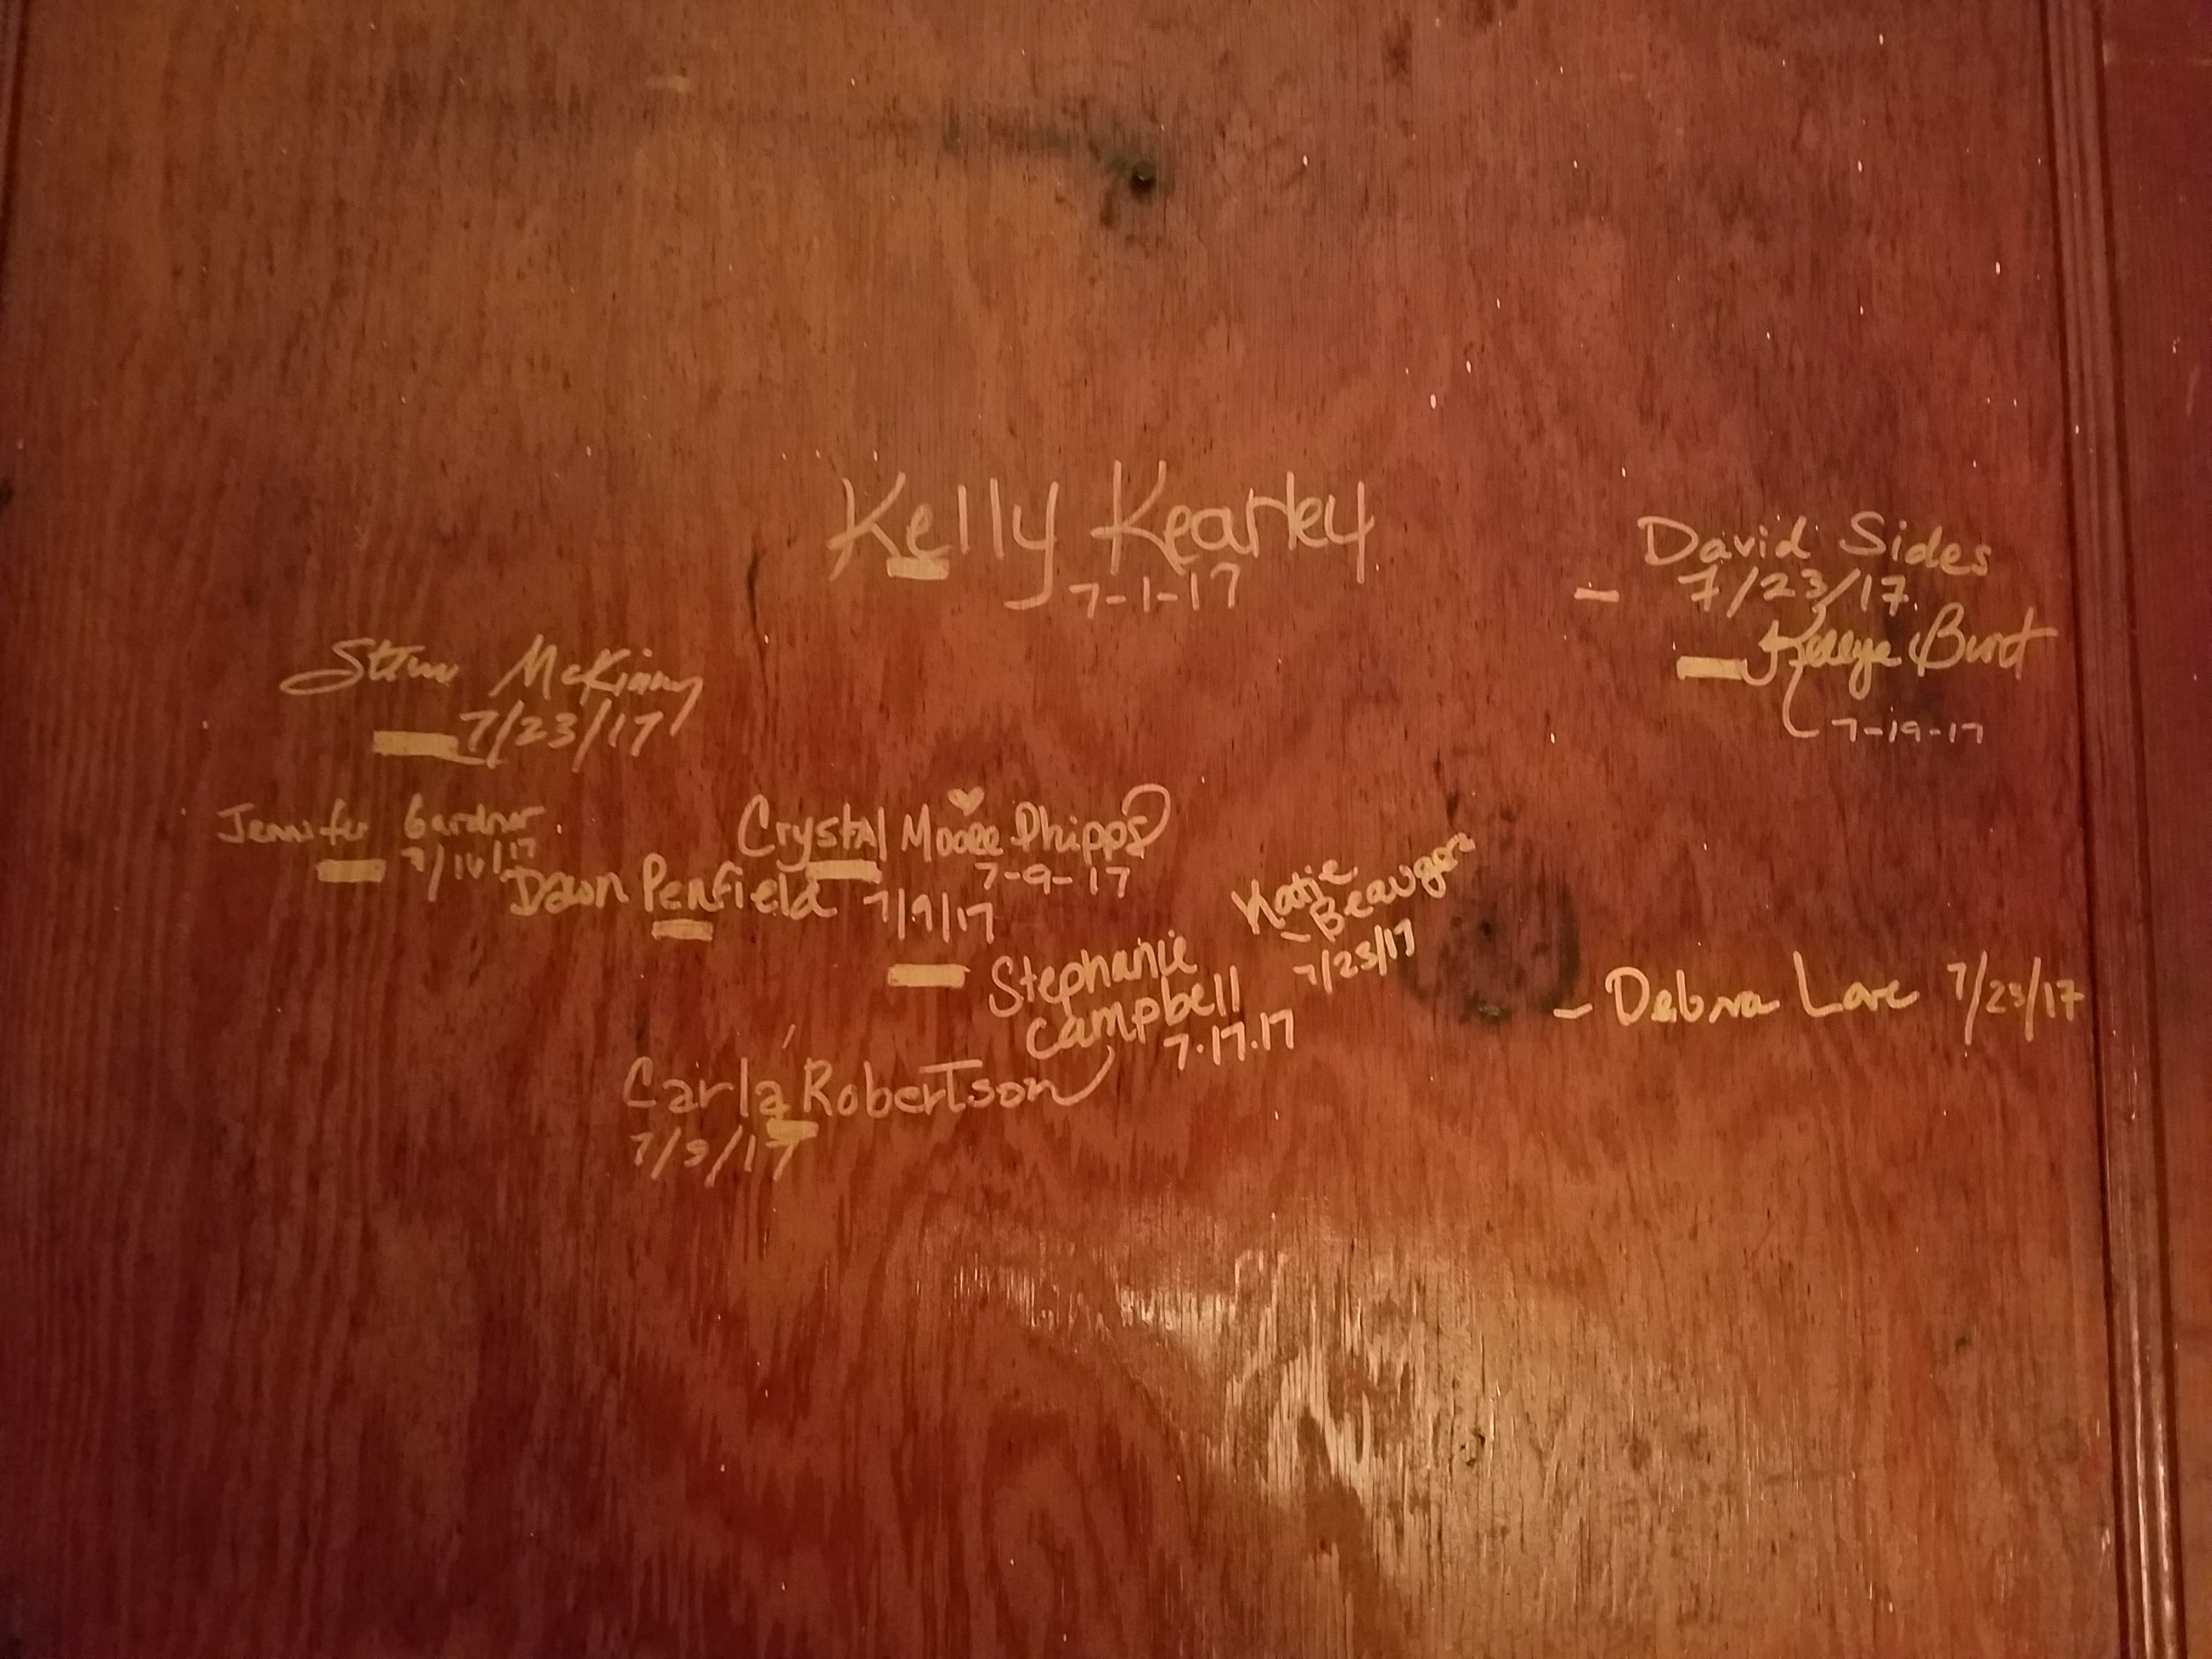 Kelly Kearley
7-1-17
David Sides
7/23/17
Kellye Burt
7-19-17
Steve McKinny
7/23/17
Jennifer Gardner
7/16/17
Crystal Moore Phipps
7-9-17
Dawn Penfield 7/9/17
Katie
7/23/17
Stephanie
Campbell
7.17.17
Debra Love 7/23/17
Carla Robertson
7/9/17